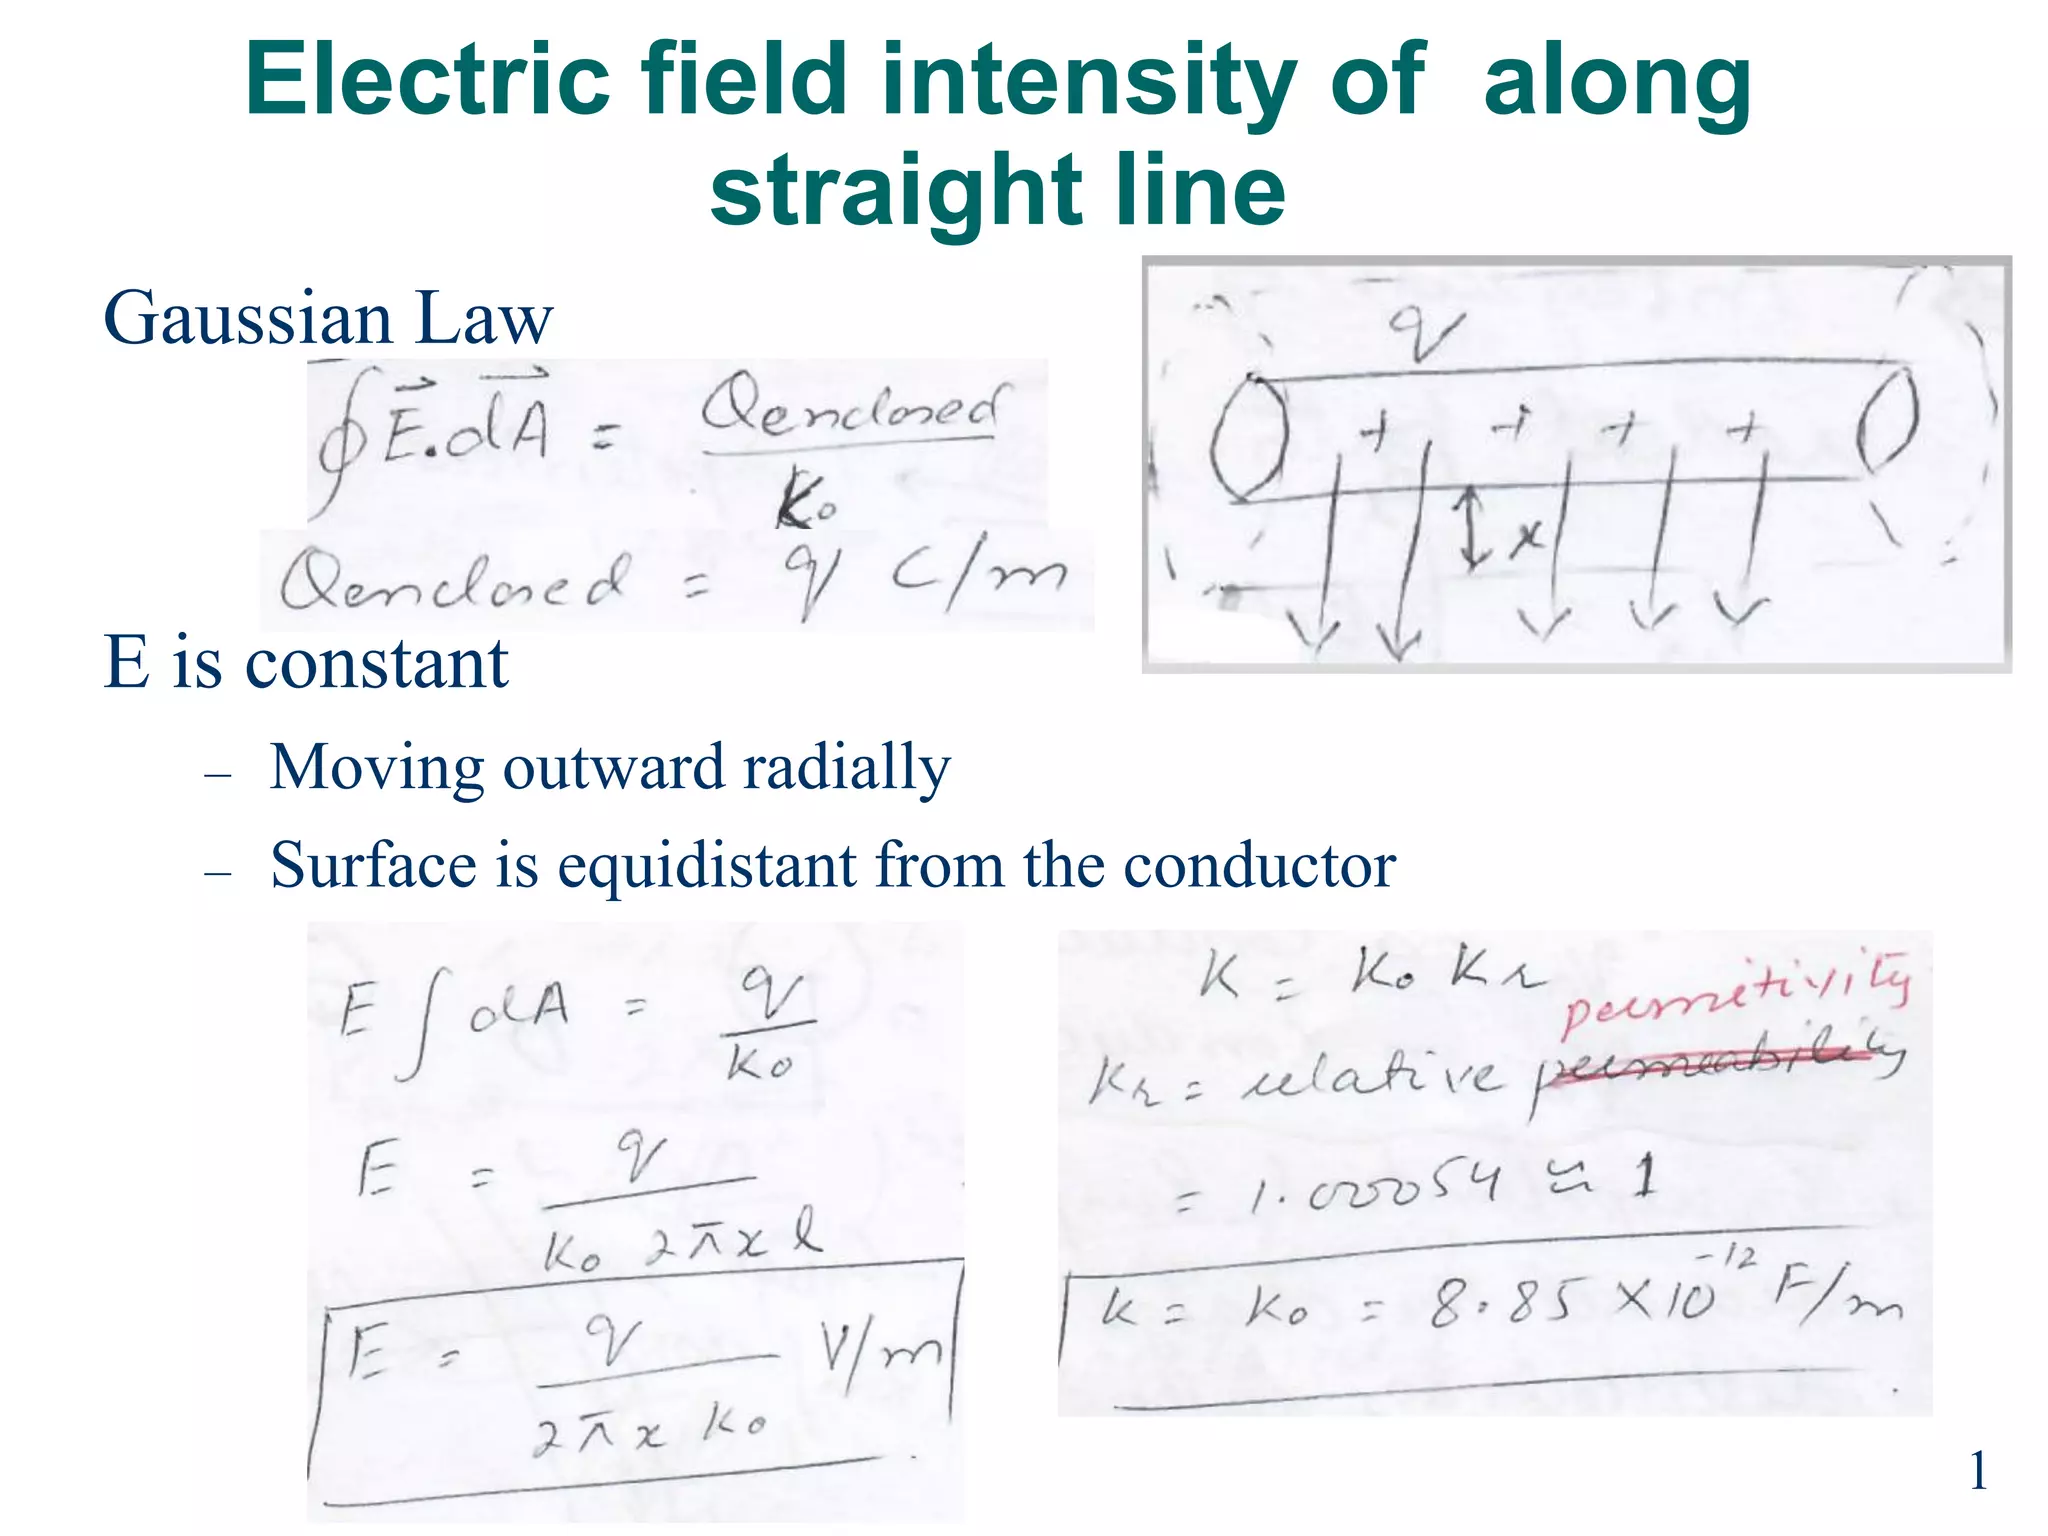 Electric field intensity of along
straight line
Gaussian Law
∮E⃗.dA⃗ = Qenclosed / K₀
Qenclosed = q C/m
q
+ + + +
x
E is constant
– Moving outward radially
– Surface is equidistant from the conductor
E ∫ dA = q / K₀
E = q / K₀ 2πx l
E = q / 2πx K₀ V/m
K = K₀ Kr
permitivity
Kr = relative permeability
= 1.00054 ≈ 1
K = K₀ = 8.85 × 10⁻¹² F/m
1